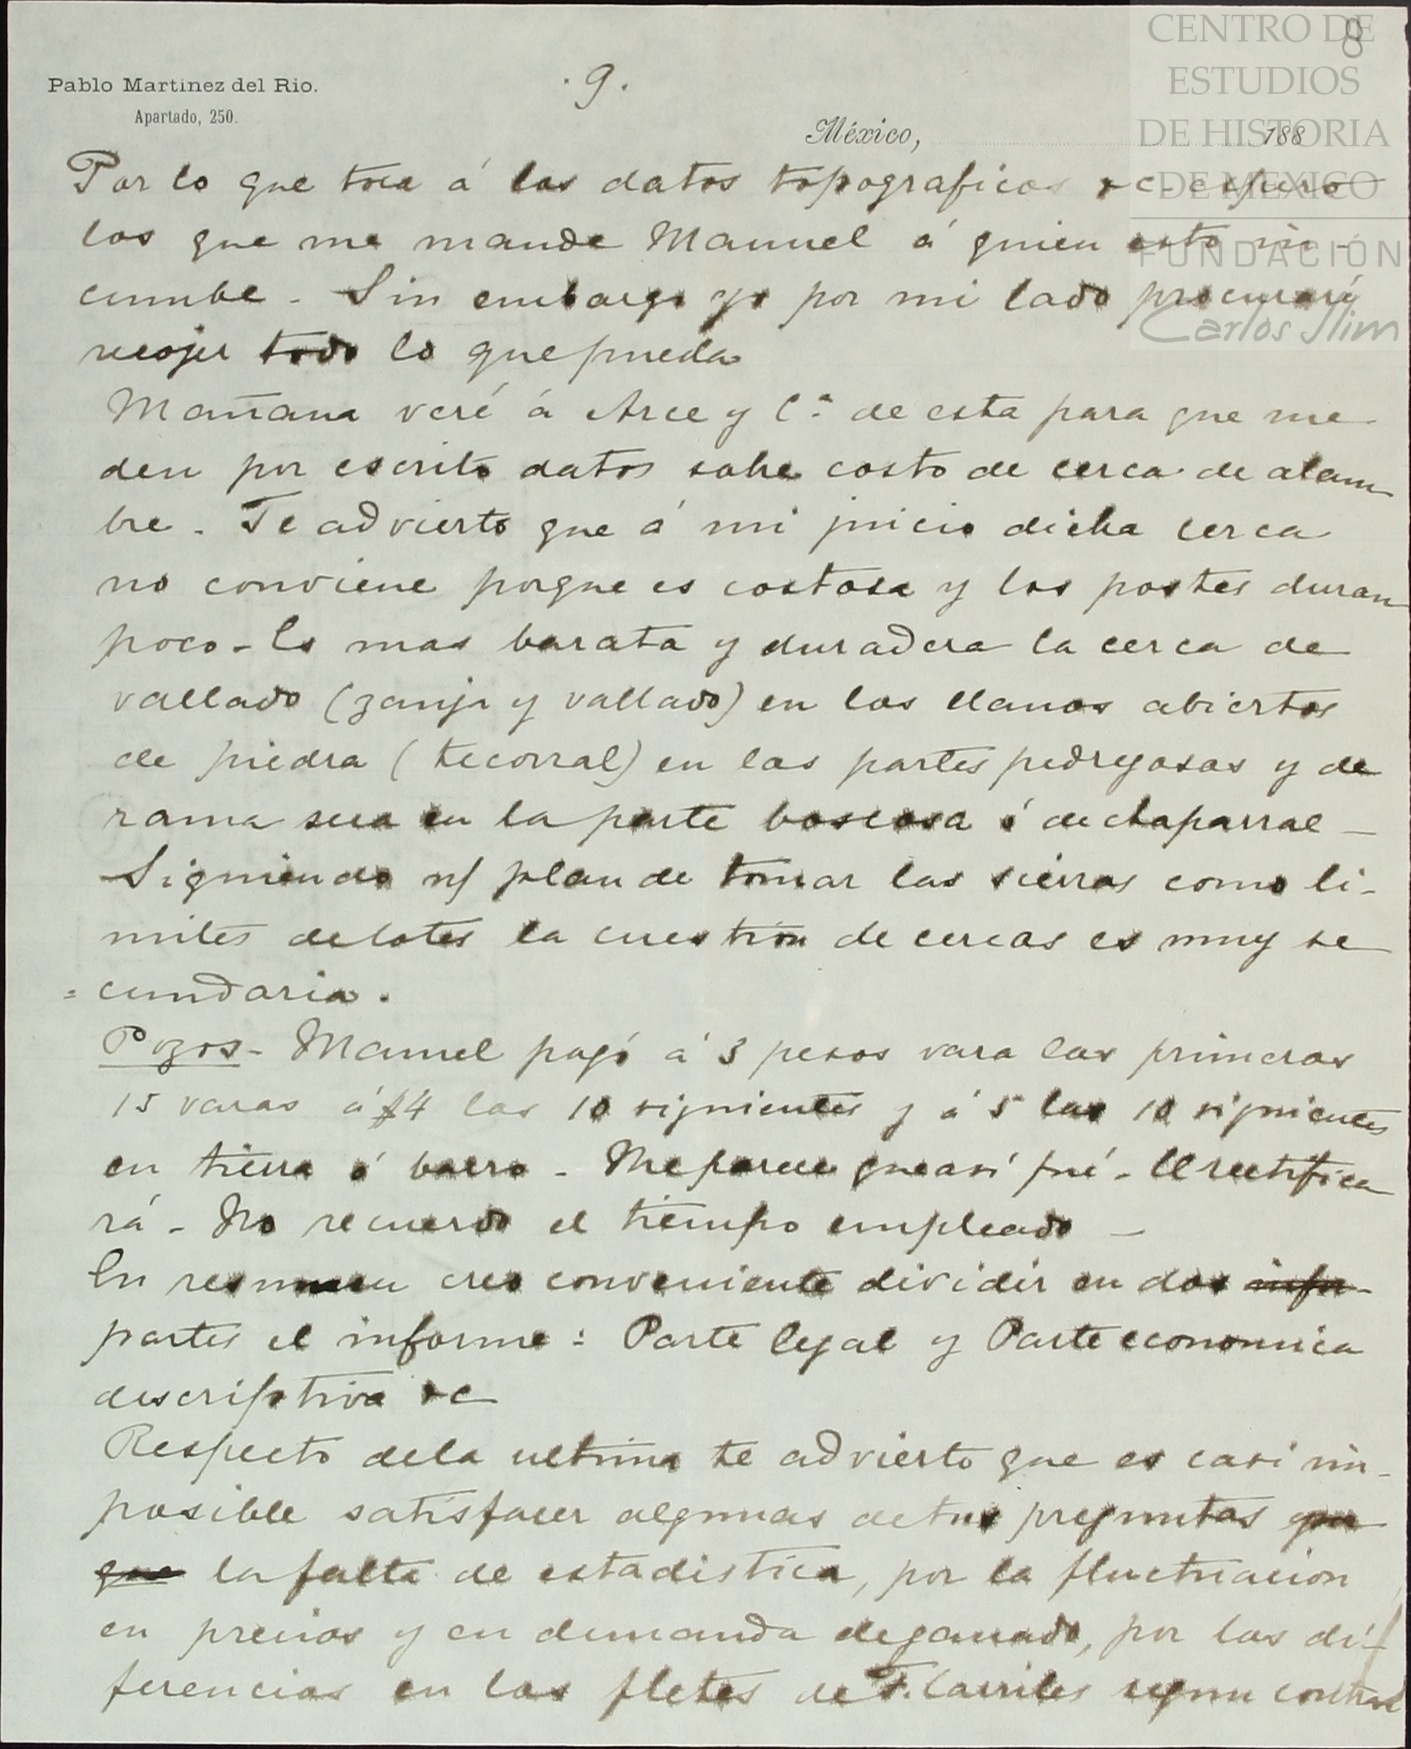 8
CENTRO DE
ESTUDIOS
DE HISTORIA
DE MEXICO
FUNDACIÓN
Carlos Slim
Pablo Martinez del Rio.
Apartado, 250.
. 9 .
México, 188
Por lo que toca á los datos topograficos &c. espero
los que me mande Manuel á quien esto in-
cumbe - Sin embargo yo por mi lado procuraré
recojer todo lo que pueda
Mañana veré á Arce y Cª de esta para que me
den por escrito datos sobre costo de cerca de alam
bre - Te advierto que á mi juicio dicha cerca
no conviene porque es costosa y los postes duran
poco - Es mas barata y duradera la cerca de
vallado (zanja y vallado) en los llanos abiertos
de piedra (tecorral) en las partes pedregosas y de
rama seca en la parte boscosa ó de chaparral -
Siguiendo n/ plan de tomar las sierras como li-
mites de lotes la cuestión de cercas es muy se
=cundaria.
Pozos - Manuel pagó á 3 pesos vara las primeras
15 varas á $4 las 10 siguientes y á 5 las 10 siguientes
en tierra ó barro - Me parece que así fué - El rectifica
rá - No recuerdo el tiempo empleado -
En resumen creo conveniente dividir en dos infor-
partes el informe: Parte legal y Parte economica
descriptiva &c
Respecto de la ultima te advierto que es casi im-
posible satisfacer algunas de tus preguntas por
que la falta de estadistica, por la fluctuacion
en precios y en demanda de ganado, por las di-
ferencias en los fletes de F. Carriles segun contrat